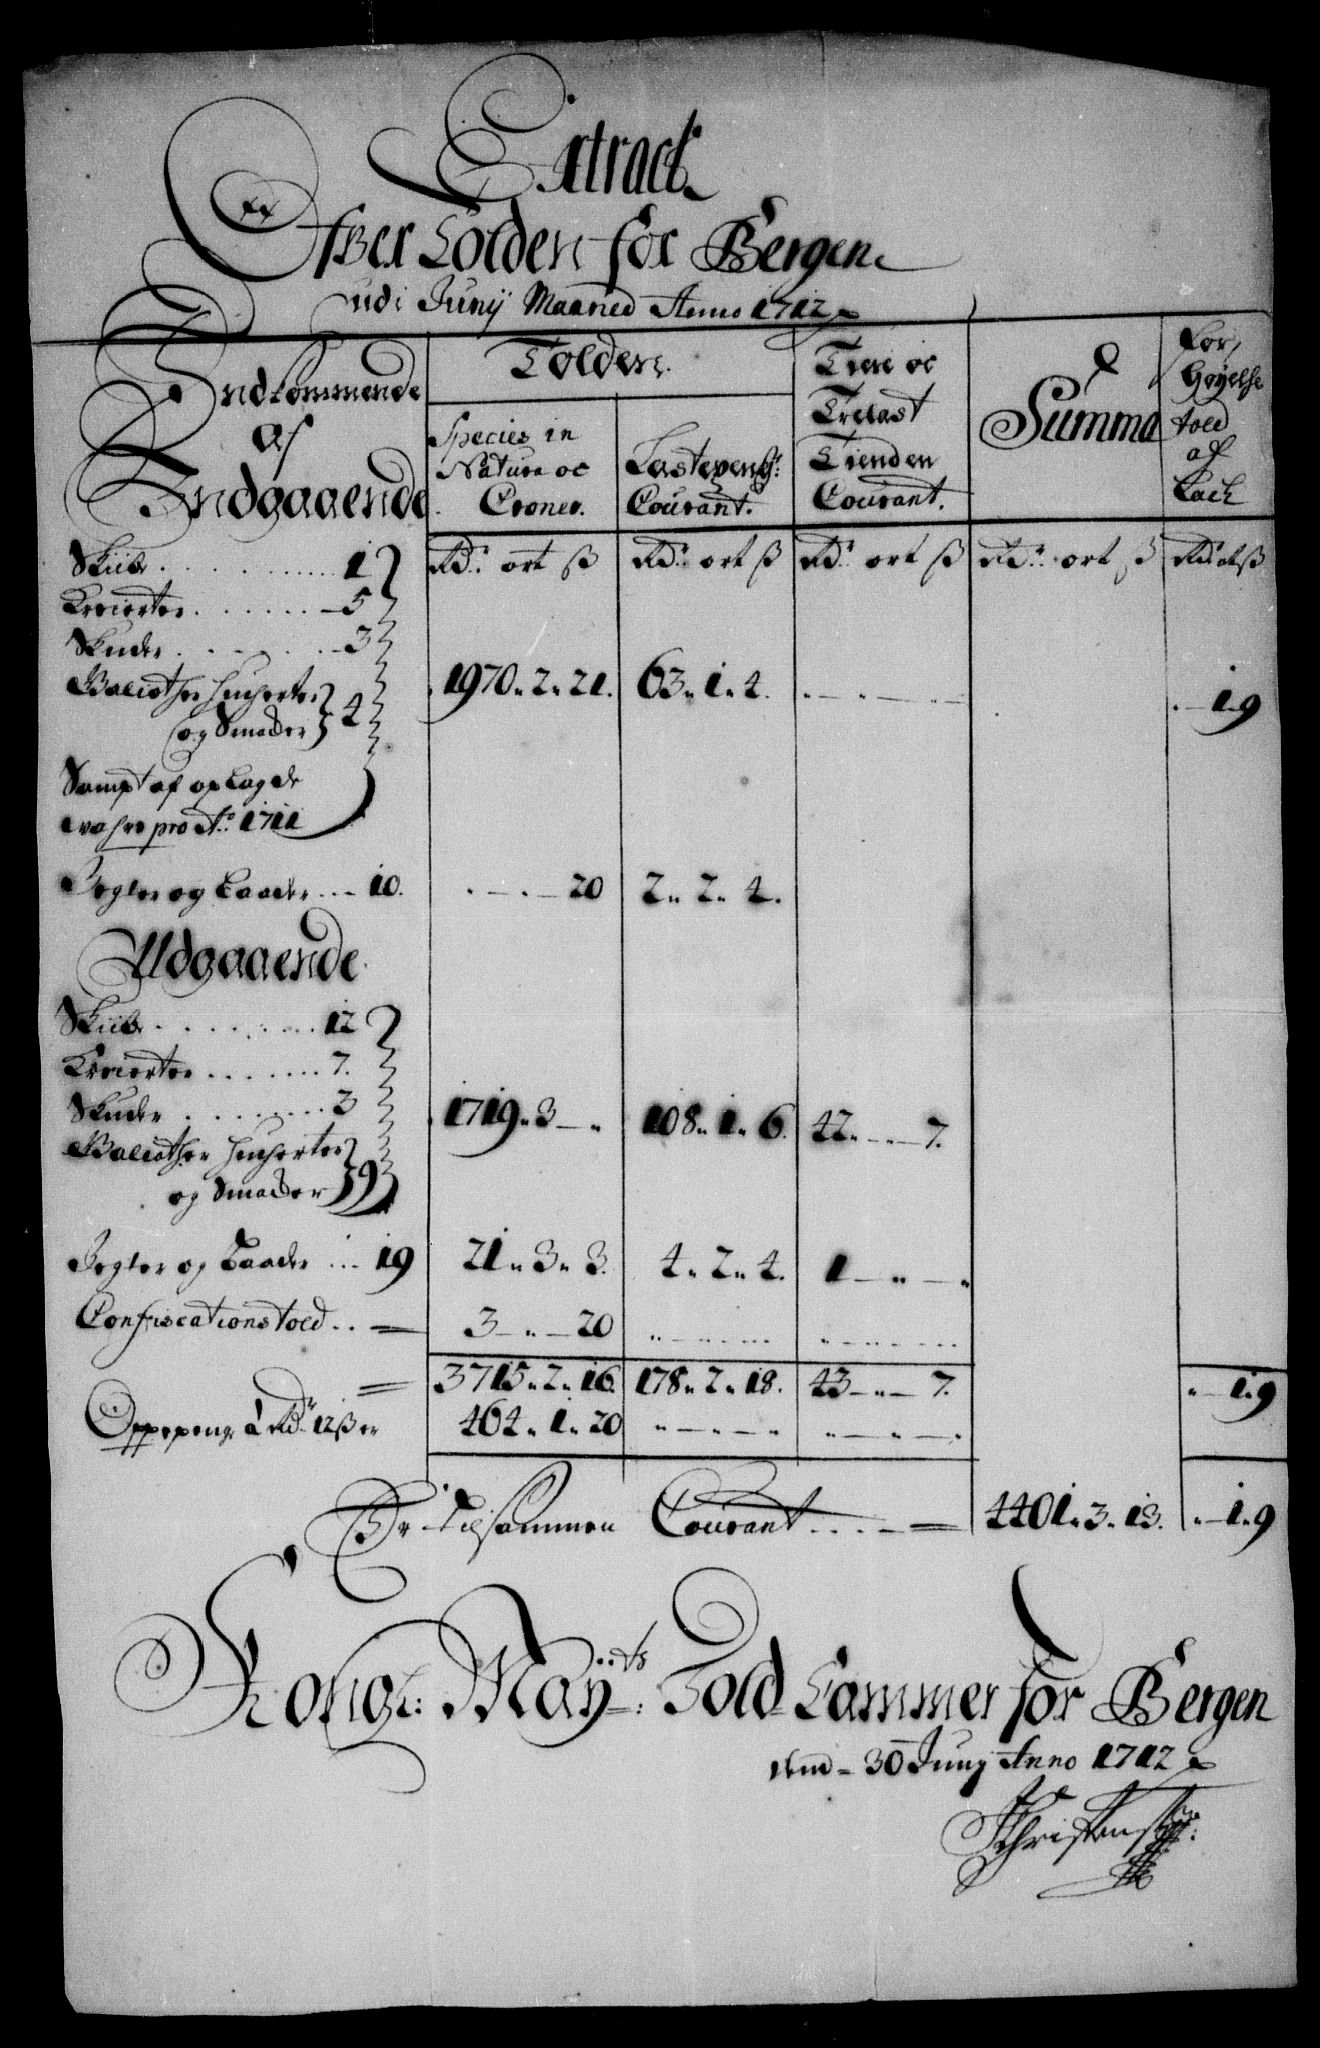 Extract
Ofver Tolden for Bergen
udi Junij Maaned Anno 1712
Indkommende
af
Indgaaende
Tolden.
Species in
Natura oc
Croner.
Lastepeng:
Courant.
Tiere oc
Trelast
Tienden
Courant.
Summa
For
høyelse
told
af
Rdr: ort ß Rdr: ort ß Rdr: ort ß Rdr: ort ß Rdr ort ß
Skiibe . . . . . . . 1
Kreierter . . . . . . . 5
Skuder . . . . . . . 3
Galiother Huchorter
og Smacker 4
1970 " 2 " 21. 63 " 1 " 4. . — " — . — 1 " 9
Sampt af oplagde
wahre pro Ao: 1711
Jegter og Baader . . . 10. . — . — 20 2 " 2 " 4.
Udgaaende
Skiibe . . . . . . . 12
Kreierter . . . . . . . 7.
Skuder . . . . . . . 3
Galiother Huchorter
og Smacker 59
1719 " 3 — " 108 " 1 " 6. 42 " — " — 7.
Jegter og Baader . . . 19 21 " 3 " 3. 4 " 2 " 4. 1 — " — "
Confiscations told . . = 3 — " — 20
= 3715 " 2 " 16. 178 " 2 " 18. 43 — " — 7. " — 1 " 9
Oppepenge â Rdr 12 ß er 464 " 1 " 20 " — " — " " — " — "
Er tilsammen Courant . . . . = 4401 " 3 " 13. " — 1 " 9
Kongl: Mayts: Told Cammer for Bergen
dend - 30 Junij Anno 1712